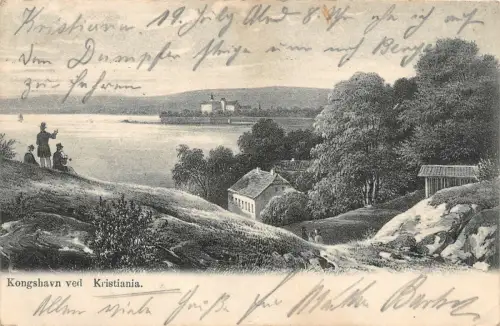 Kristiania. 19. July Abd 8 Uhr ehe ich auf
dem Dampfer steige um nach Bergen
zu fahren
Kongshavn ved Kristiania.
Allen viele Grüße from Walter